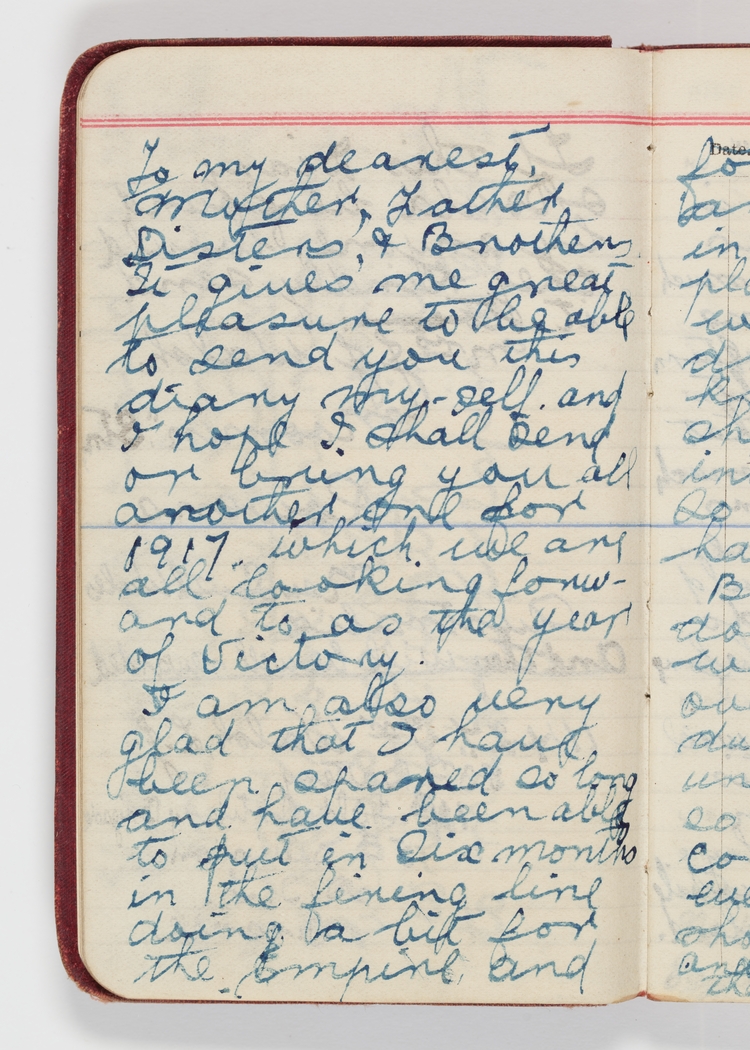 To my dearest,
Mother, Father
Sisters, & Brothers
It gives me great
pleasure to be able
to send you this
diary my-self. and
I hope I shall send
or bring you all
another one for
1917. which we are
all looking forw-
ard to, as the year
of Victory.
I am also very
glad that I have
been spared so long
and have been able
to put in six months
in the firing line
doing a bit for
the Empire, and
Date